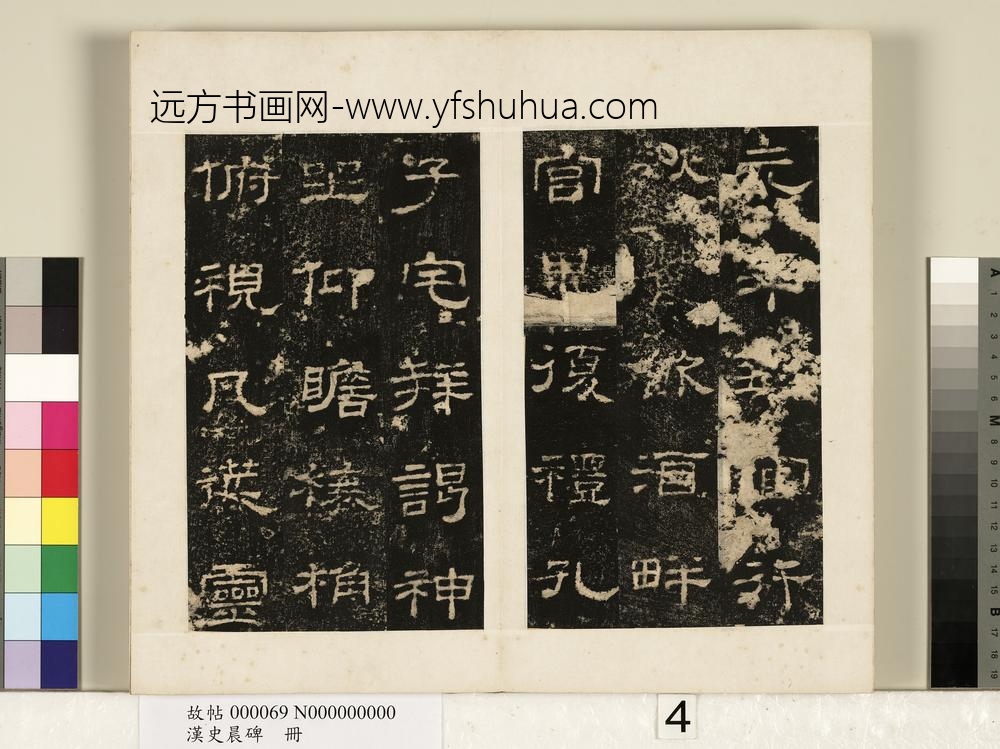 远方书画网-www.yfshuhua.com
元年官行
秋飲酒畔
宮畢復禮孔
子宅拜謁神
坐仰瞻榱桷
俯視几筵靈
故帖 000069 N000000000
漢史晨碑 冊
4
A 1 2 3 4 5 6 M 8 9 10 11 12 13 14 15 B 17 18 19